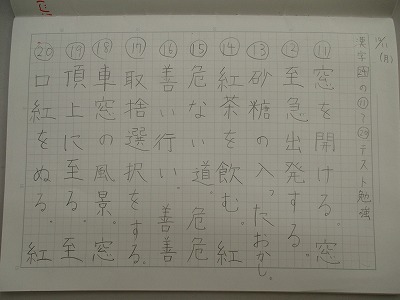 10/11(月)
漢字㉔の⑪〜⑳テスト勉強
⑪窓を開ける 窓
⑫至急出発する。
⑬砂糖の入ったおかし。
⑭紅茶を飲む。紅
⑮危ない道。危危
⑯善い行い。善善
⑰取捨選択をする。
⑱車窓の風景。窓
⑲頂上に至る。至
⑳口紅をぬる。紅